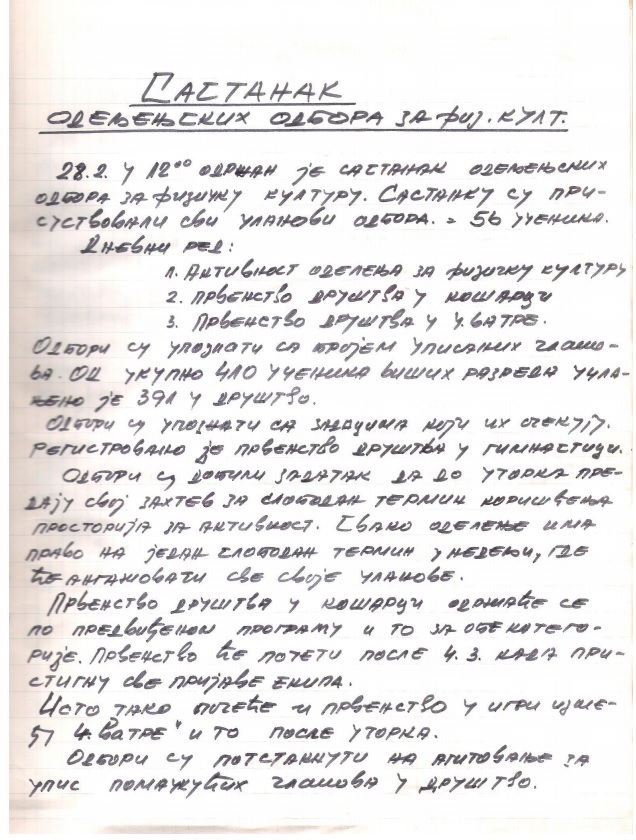 САСТАНАК
ОДЕЉЕЊСКИХ ОДБОРА ЗА ФИЗ. КУЛТ.
28.2. У 12⁰⁰ ОДРЖАН ЈЕ САСТАНАК ОДЕЉЕЊСКИХ
ОДБОРА ЗА ФИЗИЧКУ КУЛТУРУ. САСТАНКУ СУ ПРИ-
СУСТВОВАЛИ СВИ ЧЛАНОВИ ОДБОРА. = 56 УЧЕНИКА.
ДНЕВНИ РЕД:
1. АКТИВНОСТ ОДЕЛЕЊА ЗА ФИЗИЧКУ КУЛТУРУ
2. ПРВЕНСТВО ДРУШТВА У КОШАРЦИ
3. ПРВЕНСТВО ДРУШТВА У 4. ВАТРЕ.
ОДБОРИ СУ УПОЗНАТИ СА БРОЈЕМ УПИСАНИХ ЧЛАНО-
ВА. ОД УКУПНО 410 УЧЕНИКА ВИШИХ РАЗРЕДА УЧЛА-
ЊЕНО ЈЕ 391 У ДРУШТВО.
ОДБОРИ СУ УПОЗНАТИ СА ЗАДАЦИМА КОЈИ ИХ ОЧЕКУЈУ.
РЕГИСТРОВАНО ЈЕ ПРВЕНСТВО ДРУШТВА У ГИМНАСТИЦИ.
ОДБОРИ СУ ДОБИЛИ ЗАДАТАК ДА ДО УТОРКА ПРЕ-
ДАЈУ СВОЈ ЗАХТЕВ ЗА СЛОБОДАН ТЕРМИН КОРИШЋЕЊА
ПРОСТОРИЈА ЗА АКТИВНОСТ. СВАКО ОДЕЛЕЊЕ ИМА
ПРАВО НА ЈЕДАН СЛОБОДАН ТЕРМИН У НЕДЕЉИ, ГДЕ
ЋЕ АНГАЖОВАТИ СВЕ СВОЈЕ ЧЛАНОВЕ.
ПРВЕНСТВО ДРУШТВА У КОШАРЦИ ОДРЖАЋЕ СЕ
ПО ПРЕДВИЂЕНОМ ПРОГРАМУ И ТО ЗА ОБЕ КАТЕГО-
РИЈЕ. ПРВЕНСТВО ЋЕ ПОЧЕТИ ПОСЛЕ 4. 3. КАДА ПРИ-
СТИГНУ СВЕ ПРИЈАВЕ ЕКИПА.
ИСТО ТАКО ПОЧЕЋЕ И ПРВЕНСТВО У ИГРИ ИЗМЕ-
ЂУ 4. ВАТРЕ" И ТО ПОСЛЕ УТОРКА.
ОДБОРИ СУ ПОТСТАКНУТИ НА АГИТОВАЊЕ ЗА
УПИС ПОМАЖУЋИХ ЧЛАНОВА У ДРУШТВО.